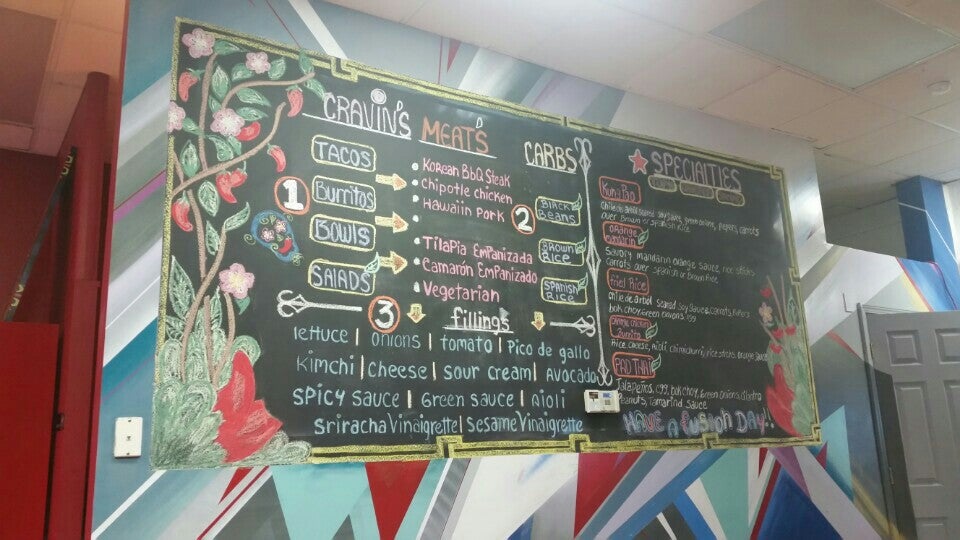 CRAVIN'S
TACOS
1
Burritos
BOWLS
SALADS
MEATS
Korean BBQ Steak
Chipotle chicken
Hawaiin Pork
TilaPia EmPanizada
Camarón EmPanizado
Vegetarian
CARBS
2
BLACK
BEANS
BROWN
RICE
SPANISH
RICE
3
fillings
lettuce | onions | tomato | Pico de gallo
Kimchi | Cheese | sour cream | Avocado
SPicy sauce | Green sauce | Aioli
Sriracha Vinaigrette | Sesame Vinaigrette
SPECIALTIES
Kung Pao
Chile de arbol soy sauce, green onions, carrots
over Brown or Spanish Rice
Orange
Mandarin
Savory mandarin orange sauce, rice
carrots over Spanish or Brown Rice
Fried Rice
Chile de arbol Soy Sauce, Carrots,
bok choy, Green onions, egg
Orange Chicken
Burrito
Rice, Cheese, Aioli, chimichurri, rice sticks, orange sauce
PAD THAI
Jalapeños, egg, bok choy, Green Onions,
Peanuts, Tamarind sauce
HAVE A FUSION DAY!!